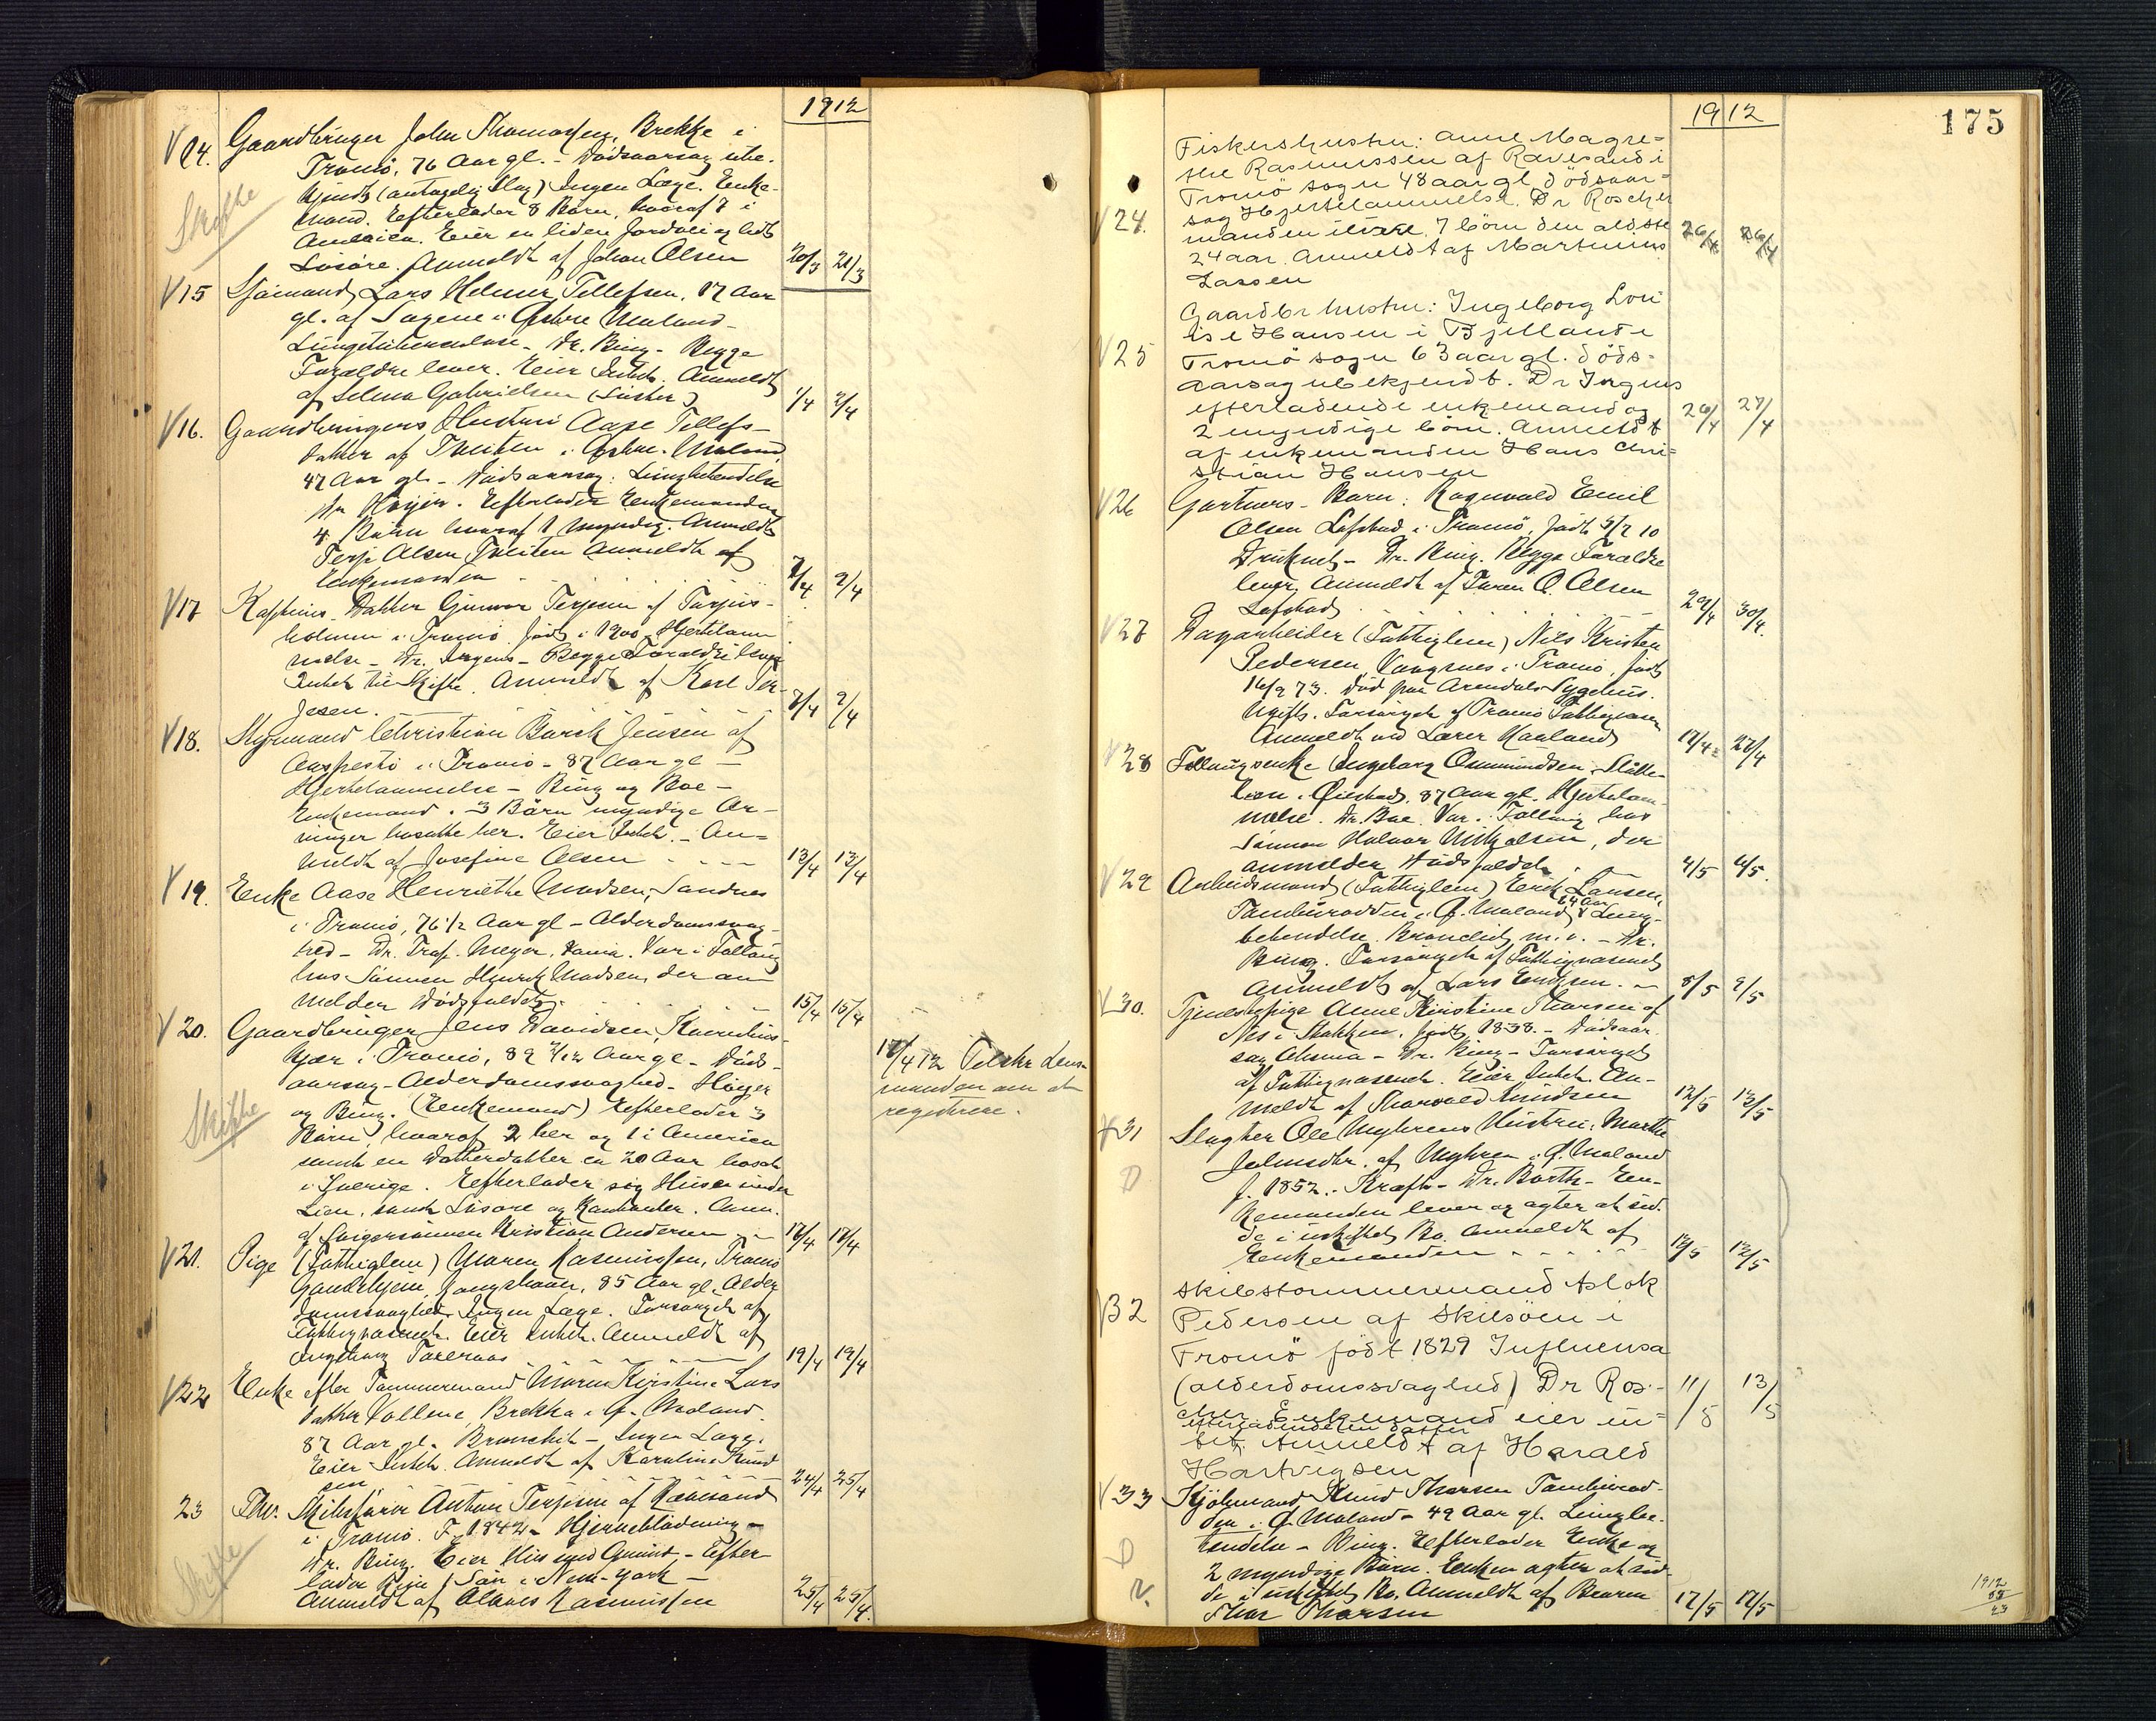 1912
V 14. Gaardbruger John Thomassen, Brekke i
Tromö, 76 Aar gl. - Dödsaarsag ube-
kjendt (antagelig Slag) Ingen Læge. Enke-
mand. Efterlader 8 Börn, hvoraf 7 i
Skifte
America. Eier en liden Jordvei og lidt
Lösöre. Anmeldt af Johan Olsen 20/3 21/3
V 15 Sjömand Lars Helmer Tellefsen, 17 Aar
gl. af Songene i Östre Moland -
Lungetuberculose - Dr. Bing - Begge
Forældre lever. Eier Intet. Anmeldt
af Selma Gabrielsen (Söster) 1/4 2/4
V 16. Gaardbrugers Hustru Aase Tellefs-
datter af Tveiten i Östre Moland
47 Aar gl. - Dödsaarsag: Lungebetendelse
Dr Höyer. Efterlader Enkemand og
4 Börn hvoraf 1 myndig. Anmeldt
Terje Olsen Tveiten Anmeldt af
Enkemanden 2/4 2/4
V 17 Kapteins Datter Gunvor Terjesen af Torjus-
holmen i Tromö. Född i 1900. Hjertelam-
melse - Dr. Irgens - Begge Forældre lever
Intet til Skifte. Anmeldt af Karl Ter-
jesen. 7/4 9/4
V 18. Styrmand Christian Barck Jensen af
i Tromö - 87 Aar gl -
Hjertelammelse - Bing og Boe -
Enkemand. 3 Börn myndige Ar-
vinger bosatte her. Eier Intet. - An-
meldt af Josefine Olsen 13/4 13/4
V 19. Enke Aase Henriethe Madsen, Sandnes
i Tromö, 76 1/2 Aar gl - Alderdomssvag-
hed - Dr. Prof. Meyer, Dania. Var i Follaug
hos Sönnen Henrik Madsen, der an-
melder Dödsfaldet. 15/4 15/4
V 20. Gaardbruger Jens Davidsen,
kjær i Tromö, 89 Aar gl - Döds-
aarsag - Alderdomssvaghed - Höyer
og Bing. (Enkemand) Efterlader 3
Skifte
Börn, hvoraf 2 her og 1 i America
samt en Datterdatter ca 20 Aar bosat
i Sverige. Efterlader sig Huse uden
Lien, samt Lösöre og Kontanter. Anm.
af Svigersönnen Kristian Andersen 17/4 17/4
17/4 12 Tilskr Lens-
manden om at
registrere.
V 21. Pige (Fattiglem) Maren Rasmussen, Tromö
Gamlehjem, Kongshavn, 85 Aar gl. Alder-
domssvaghed. Ingen Læge. Forsörget af
Fattigvæsenet. Eier Intet. Anmeldt af
Ingeborg 19/4 19/4
V 22 Enke efter Tömmermand Maren Kirstine Lars
datter Vollene, Brekka i Ö. Moland.
87 Aar gl. Bronchit - Ingen Læge.
Eier Intet. Anmeldt af Karoline Knud
sen 24/4 25/4
23 Fhv. Skibsförer Anton Terjesen af Rævesand
i Tromö. F. 1842 - Hjerneblödning -
Dr. Bing. Eier Hus med Grund. - Efter-
lader Sön i New-York -
Skifte
Anmeldt af Rasmussen 25/4 25/4.
1912
175
Fiskershustru: Anne Magre-
the Rasmussen af Rævesand i
Tromö sogn 48 aar gl. dödsaar-
V 24. sag Hjertelammelse. Dr Roscher
manden ilive. 7 börn den aldste
24 aar. Anmeldt af Martinius
Lassen 26/4 26/4
Gaardbr hustru: Ingeborg Lovi
ise Hansen i Bjelland i
V 25 Tromö sogn 63 aar gl. döds-
aarsag ubekjendt. Dr Irgens
efterladende enkemand og
2 myndige börn. Anmeldt
af enkemanden Hans Chri-
stian Hansen 26/4 27/4
V 26 Gartners - Barn: Ragnvald Emil
Olsen Lofstad i Tromö, född 5/7 10
Druknet - Dr. Bing. Begge Forældre
lever, Anmeldt af Faren O. Olsen
Lofstad 29/4 30/4.
V 27 Dagarbeider (Fattiglem) Nils Kristen
Pedersen, Vaagsnes i Tromö. född
16/9 73. Död paa Arendals Sygehus.
Ugift. Forsörget af Tromö Fattigvæsen
Anmeldt ved Lærer Kaaland 17/4 27/4
V 28 Follaugsenke Ingeborg Osmundsen, Slötte-
i Öiestad, 87 Aar gl. Hjertelam-
melse. Dr. Boe. Var i Follaug hos
Sönnen Halvor Mikkelsen, der
anmelder Dödsfaldet 4/5 4/5.
V 29 Arbeidsmand (Fattiglem) Erik Larsen,
64 Aar
i Ö. Moland, Lunge-
betendelse. Bronchit m.v. - Dr.
Bing. Forsörget af Fattigvæsenet
Anmeldt af Lars Eriksen. 8/5 9/5
V 30. Tjenestepige Anne Kirstine Thorsen af
Nes i Stokken, född 1838. - Dödsaar-
sag Astma - Dr. Bing - Forsörget
af Fattigvæsenet. Eier Intet. An-
meldt af Thorvald Knudsen 12/5 12/5
31 Slagter Ole Myhrens Hustru: Marthe
Johnsdtr. af Myhren i Ö. Moland
D
f. 1852. - Kræft - Dr. Barth - En-
kemanden lever og agter at sid-
de i uskiftet Bo. Anmeldt af
Enkemanden 12/5 12/5
Skibstømmermand Aslak
32 Pedersen af Skilsöen i
Tromö födt 1829 Influensa
(alderdomssvaghed) Dr Ros-
cher Enkemand eier in-
efterladende en datter
tet. Anmeldt af Harald
Hartvigsen 11/5 13/5
V 33 Kjölmand Knud Thorsen
i Ö. Moland - 49 Aar gl. Lungebe-
tendelse - Bing. Efterlader Enke og
D
2 myndige Börn. Enken agter at sid-
de i uskiftet Bo. Anmeldt af Broren
Thor Thorsen 17/5 17/5
1912